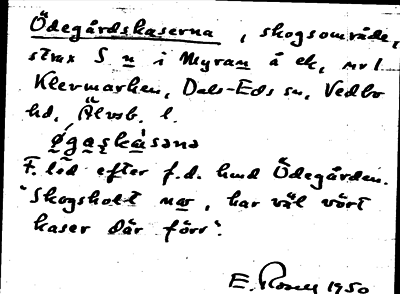 Ödegårdskaserna, skogsområde,
strax S n i Myran å ek,
Klevmarken, Dals-Eds sn, Vedbo
hd, Älvsb. l.
F. led efter f.d. hmd Ödegården.
"Skogsholt nav, har väl vört
kaser där förr".
E. 1950